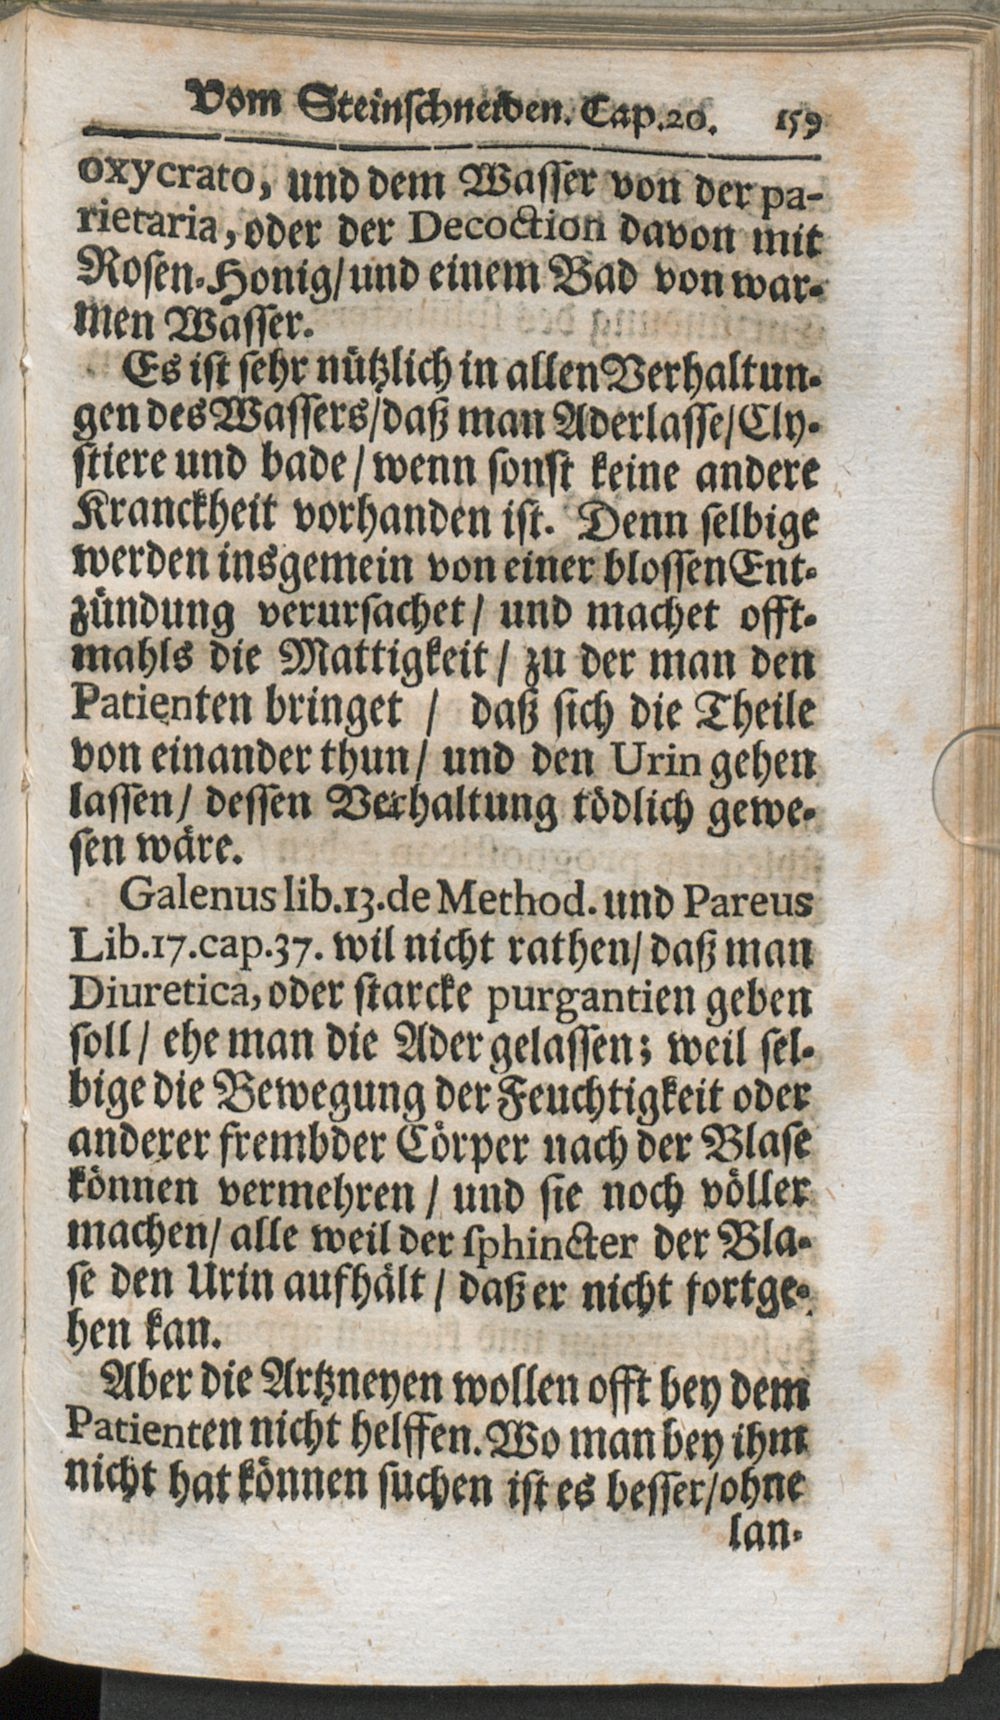 Vom Steinschneiden. Cap. 20. 159
oxycrato, und dem Wasser von der pa-
rietaria, oder der Decoction davon mit
Rosen-Honig/ und einem Bad von war-
men Wasser.
Es ist sehr nützlich in allen Verhaltun-
gen des Wassers/ daß man Aderlasse/ Cly-
stiere und bade / wenn sonst keine andere
Kranckheit vorhanden ist. Denn selbige
werden insgemein von einer blossen Ent-
zündung verursachet / und machet offt-
mahls die Mattigkeit / zu der man den
Patienten bringet / daß sich die Theile
von einander thun / und den Urin gehen
lassen / dessen Verhaltung tödlich gewe-
sen wäre.
Galenus lib. 13. de Method. und Pareus
Lib. 17. cap. 37. wil nicht rathen / daß man
Diuretica, oder starcke purgantien geben
soll / ehe man die Ader gelassen; weil sel-
bige die Bewegung der Feuchtigkeit oder
anderer frembder Cörper nach der Blase
können vermehren / und sie noch völler
machen / alle weil der sphincter der Bla-
se den Urin aufhält / daß er nicht fortge-
hen kan.
Aber die Artzneyen wollen offt bey dem
Patienten nicht helffen. Wo man bey ihm
nicht hat können suchen ist es besser / ohne
lan-